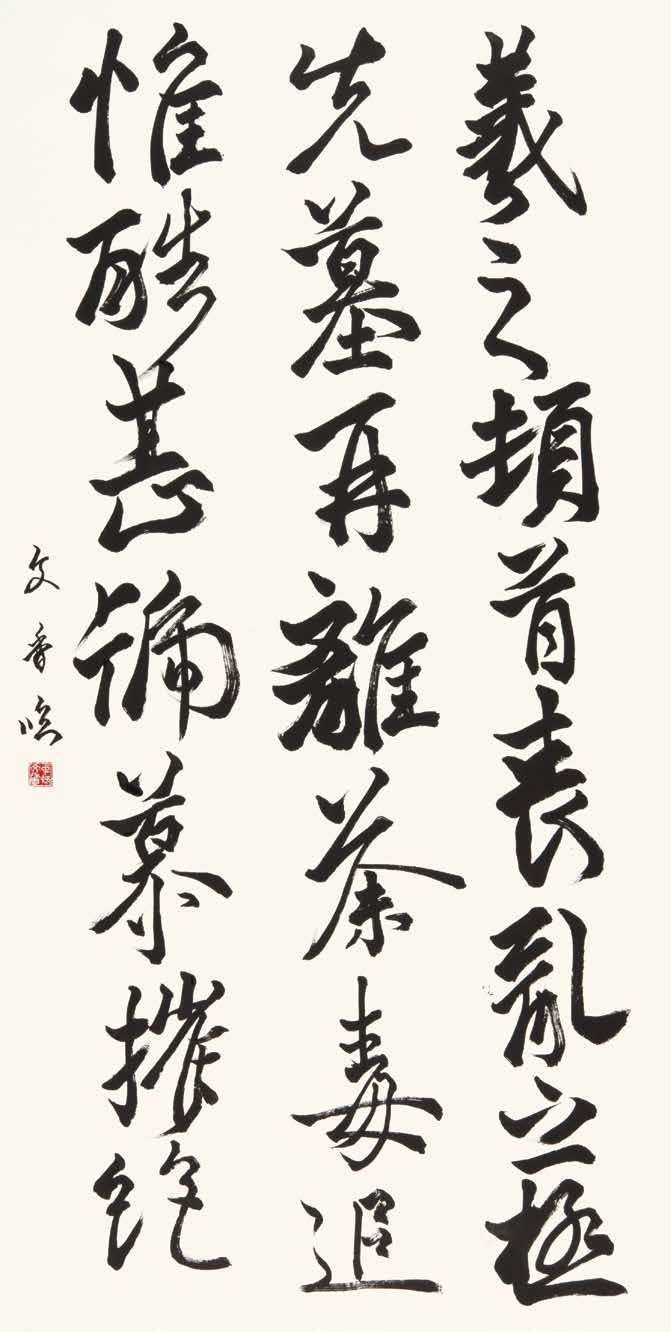 羲之頓首喪亂之極
先墓再離荼毒追
惟酷甚號慕摧絶
文香